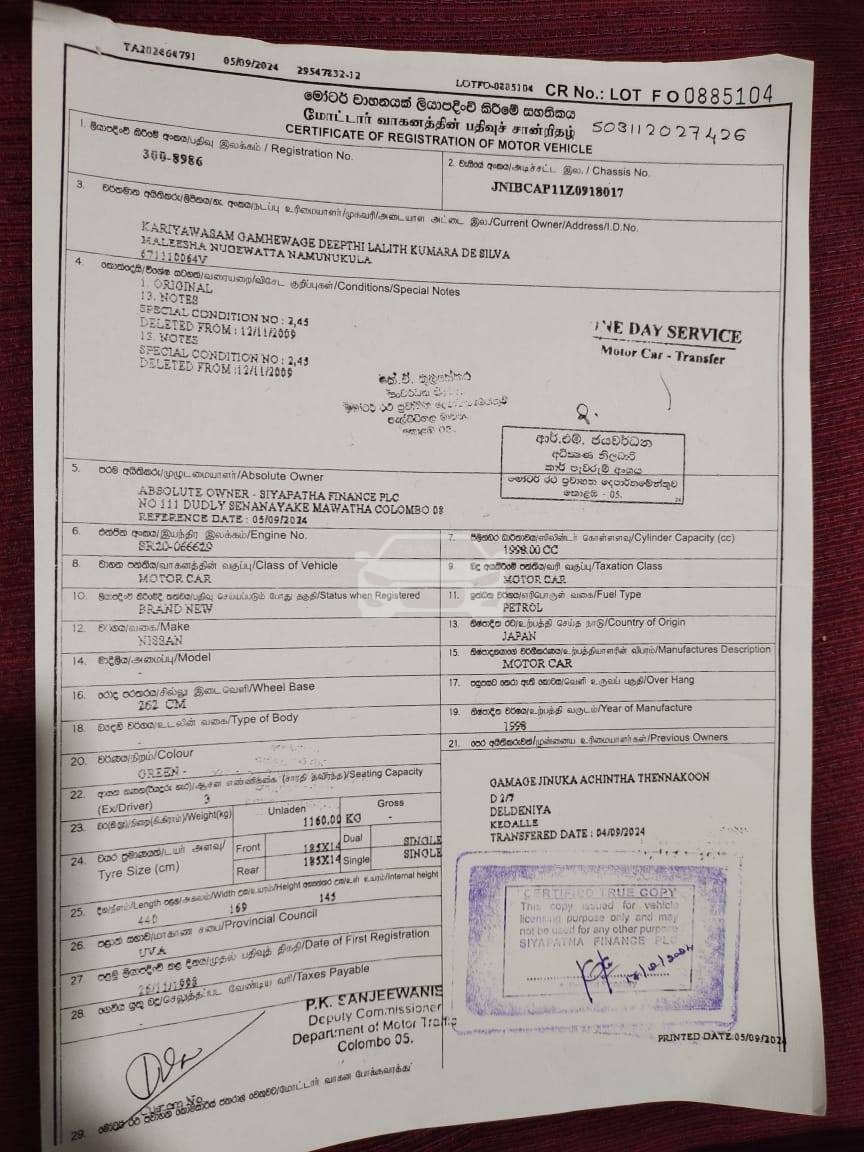 TA202464791 05/09/2024 29547832-12 LOTFO-0885104 CR No.: LOT F O 0885104
මෝටර් වාහනයක් ලියාපදිංචි කිරීමේ සහතිකය
மோட்டார் வாகனத்தின் பதிவுச் சான்றிதழ் 503112027426
CERTIFICATE OF REGISTRATION OF MOTOR VEHICLE
1. ලියාපදිංචි කිරීමේ අංකය/பதிவு இலக்கம் / Registration No.
300-8986
2. චැසියේ අංකය/அடிச்சட்ட இல. / Chassis No.
JNIBCAP11Z0918017
3. වර්තමාන අයිතිකරු/ලිපිනය/හැ. අංකය/நடப்பு உரிமையாளர்/முகவரி/அடையாள அட்டை இல./Current Owner/Address/I.D.No.
KARIYAWASAM GAMHEWAGE DEEPTHI LALITH KUMARA DE SILVA
MALEESHA NUGEWATTA NAMUNUKULA
671110064V
4. කොන්දේසි/විශේෂ සටහන්/வரையறை/விசேட குறிப்புகள்/Conditions/Special Notes
1. ORIGINAL
13. NOTES
SPECIAL CONDITION NO : 2,45
DELETED FROM : 12/11/2009
13. NOTES
SPECIAL CONDITION NO : 2,45
DELETED FROM :12/11/2009
NE DAY SERVICE
Motor Car - Transfer
කොළඹ 05.
ආර්.එම්. ජයවර්ධන
අධීක්ෂණ නිලධාරී
කාර් පැවරුම් අංශය
මෝටර් රථ ප්‍රවාහන දෙපාර්තමේන්තුව
කොළඹ - 05.
5. පරම අයිතිකරු/முழுடமையாளர்/Absolute Owner
ABSOLUTE OWNER - SIYAPATHA FINANCE PLC
NO 111 DUDLY SENANAYAKE MAWATHA COLOMBO 08
REFERENCE DATE : 05/09/2024
6. එන්ජින් අංකය/இயந்திர இலக்கம்/Engine No.
SR20-066629
7. සිලින්ඩර ධාරිතාවය/சிலிண்டர் கொள்ளளவு/Cylinder Capacity (cc)
1998.00 CC
8. වාහන පන්තිය/வாகனத்தின் வகுப்பு/Class of Vehicle
MOTOR CAR
9. බදු අයකිරීමේ පන්තිය/வரி வகுப்பு/Taxation Class
MOTOR CAR
10. ලියාපදිංචි කිරීමේදී තත්වය/பதிவு செய்யப்படும் போது தகுதி/Status when Registered
BRAND NEW
11. ඉන්ධන වර්ගය/எரிபொருள் வகை/Fuel Type
PETROL
12. වර්ගය/வகை/Make
NISSAN
13. නිෂ්පාදිත රට/உற்பத்தி செய்த நாடு/Country of Origin
JAPAN
14. මාදිලිය/அமைப்பு/Model
-
15. නිෂ්පාදකයාගේ විස්තරය/உற்பத்தியாளரின் விபரம்/Manufactures Description
MOTOR CAR
16. රෝද පරතරය/சில்லு இடைவெளி/Wheel Base
262 CM
17. පසුපසට නෙරා ඇති කොටස/வெளி உருவப் பகுதி/Over Hang
18. බඳෙහි වර්ගය/உடலின் வகை/Type of Body
-
19. නිෂ්පාදිත වර්ෂය/உற்பத்தி வருடம்/Year of Manufacture
1998
20. වර්ණය/நிறம்/Colour
GREEN -
21. පෙර අයිතිකරුවන්/முன்னைய உரிமையாளர்கள்/Previous Owners
GAMAGE JINUKA ACHINTHA THENNAKOON
D 2/7
DELDENIYA
KEGALLE
TRANSFERED DATE : 04/09/2024
22. ආසන ගණන(රියදුරු හැර)/ஆசன எண்ணிக்கை (சாரதி தவிர்ந்த)/Seating Capacity
(Ex/Driver) 3
23. බර(කිලෝ)/நிறை(கி.கிராம்)/Weight(kg) Unladen Gross
1160.00 KG -
24. ටයර් ප්‍රමාණය/டயர் அளவு/
Tyre Size (cm)
Front 185X14 Dual SINGLE
Rear 185X14 Single SINGLE
25. දිග/நீளம்/Length පළල/அகலம்/Width උස/உயரம்/Height ඇතුළත උස/உள் உயரம்/Internal height
440 169 145
26. පළාත් සභාව/மாகாண சபை/Provincial Council
UVA
27. පළමු ලියාපදිංචි කළ දිනය/முதல் பதிவுத் திகதி/Date of First Registration
26/11/1998
28. ගෙවිය යුතු බදු/செலுத்தப்பட வேண்டிய வரி/Taxes Payable
-
CERTIFIED TRUE COPY
This copy issued for vehicle
licensing purpose only and may
not be used for any other purpose
SIYAPATHA FINANCE PLC
P.K. SANJEEWANIE
Deputy Commissioner
Department of Motor Traffic
Colombo 05.
PRINTED DATE:05/09/2024
Custom No.
29.